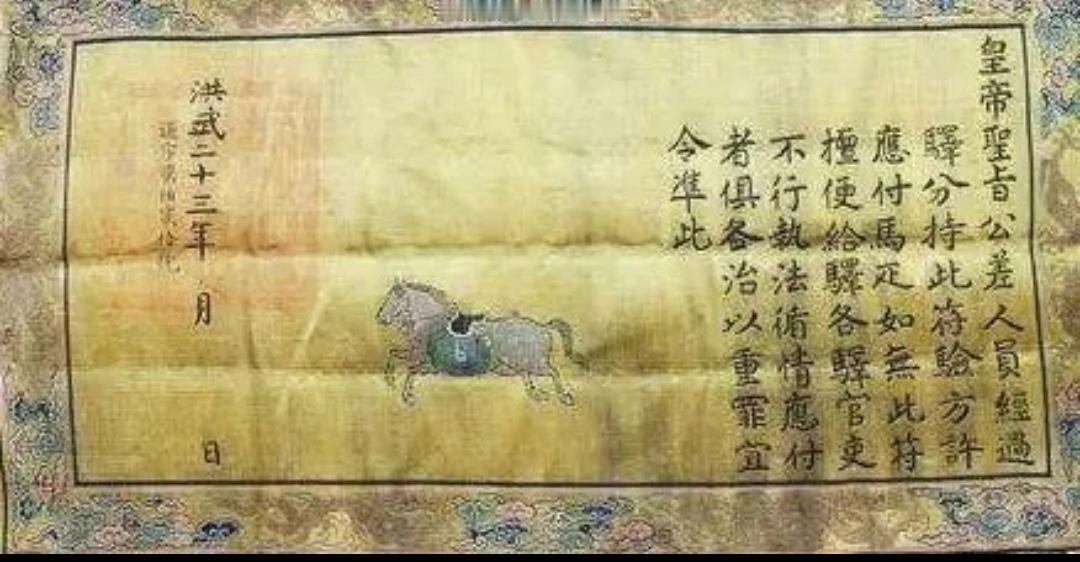 皇帝聖旨公差人員經過
驛分持此符驗方許
應付馬疋如無此符
擅便給驛各驛官吏
不行執法循情應付
者俱各治以重罪宜
令准此
洪武二十三年 月 日